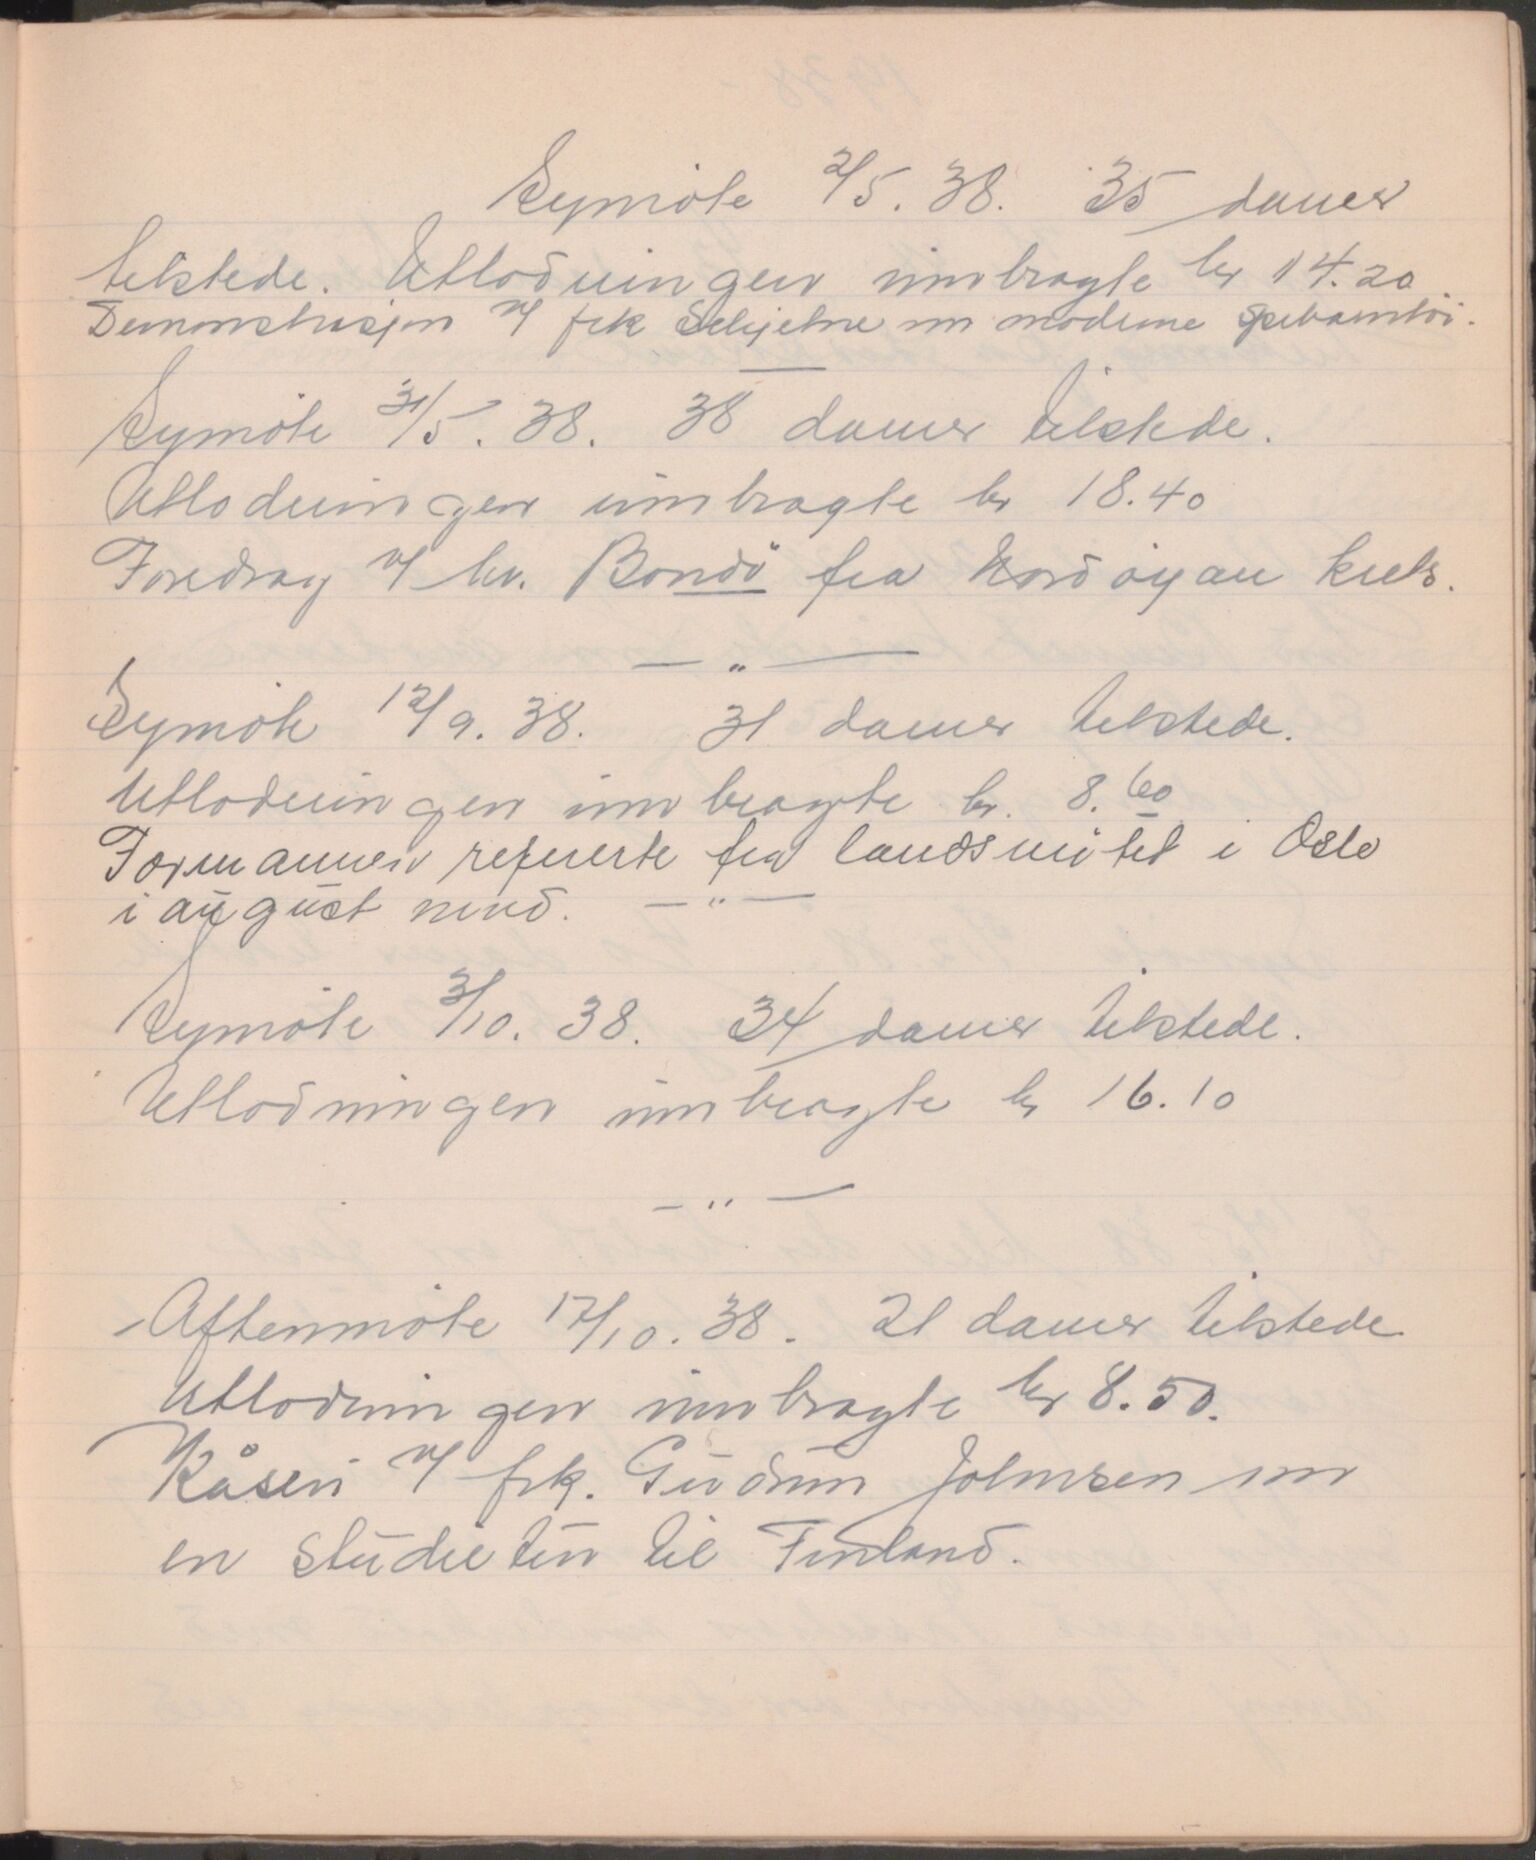 Symöte 2/5. 38. 35 damer
tilstede. Utlodningen innbragte kr 14.20
Demonstrasjon v/ frk Schjelne om moderne spebarntöi.
Symöte 31/5. 38. 38 damer tilstede.
Utlodningen innbragte kr 18.40
Foredrag v/ hr. Bondö fra Nordöyan krets.
— " —
Symöte 12/9. 38. 31 damer tilstede.
Utlodningen innbragte kr. 8.60
Formannen refererte fra landsmötet i Oslo
i august mnd. — " —
Symöte 3/10. 38. 34 damer tilstede.
Utlodningen innbragte kr 16.10
— " —
Aftenmöte 17/10. 38. 21 damer tilstede
Utlodningen innbragte kr 8.50.
Kåseri v/ frk. Gudrun Johnsen om
en studietur til Finland.